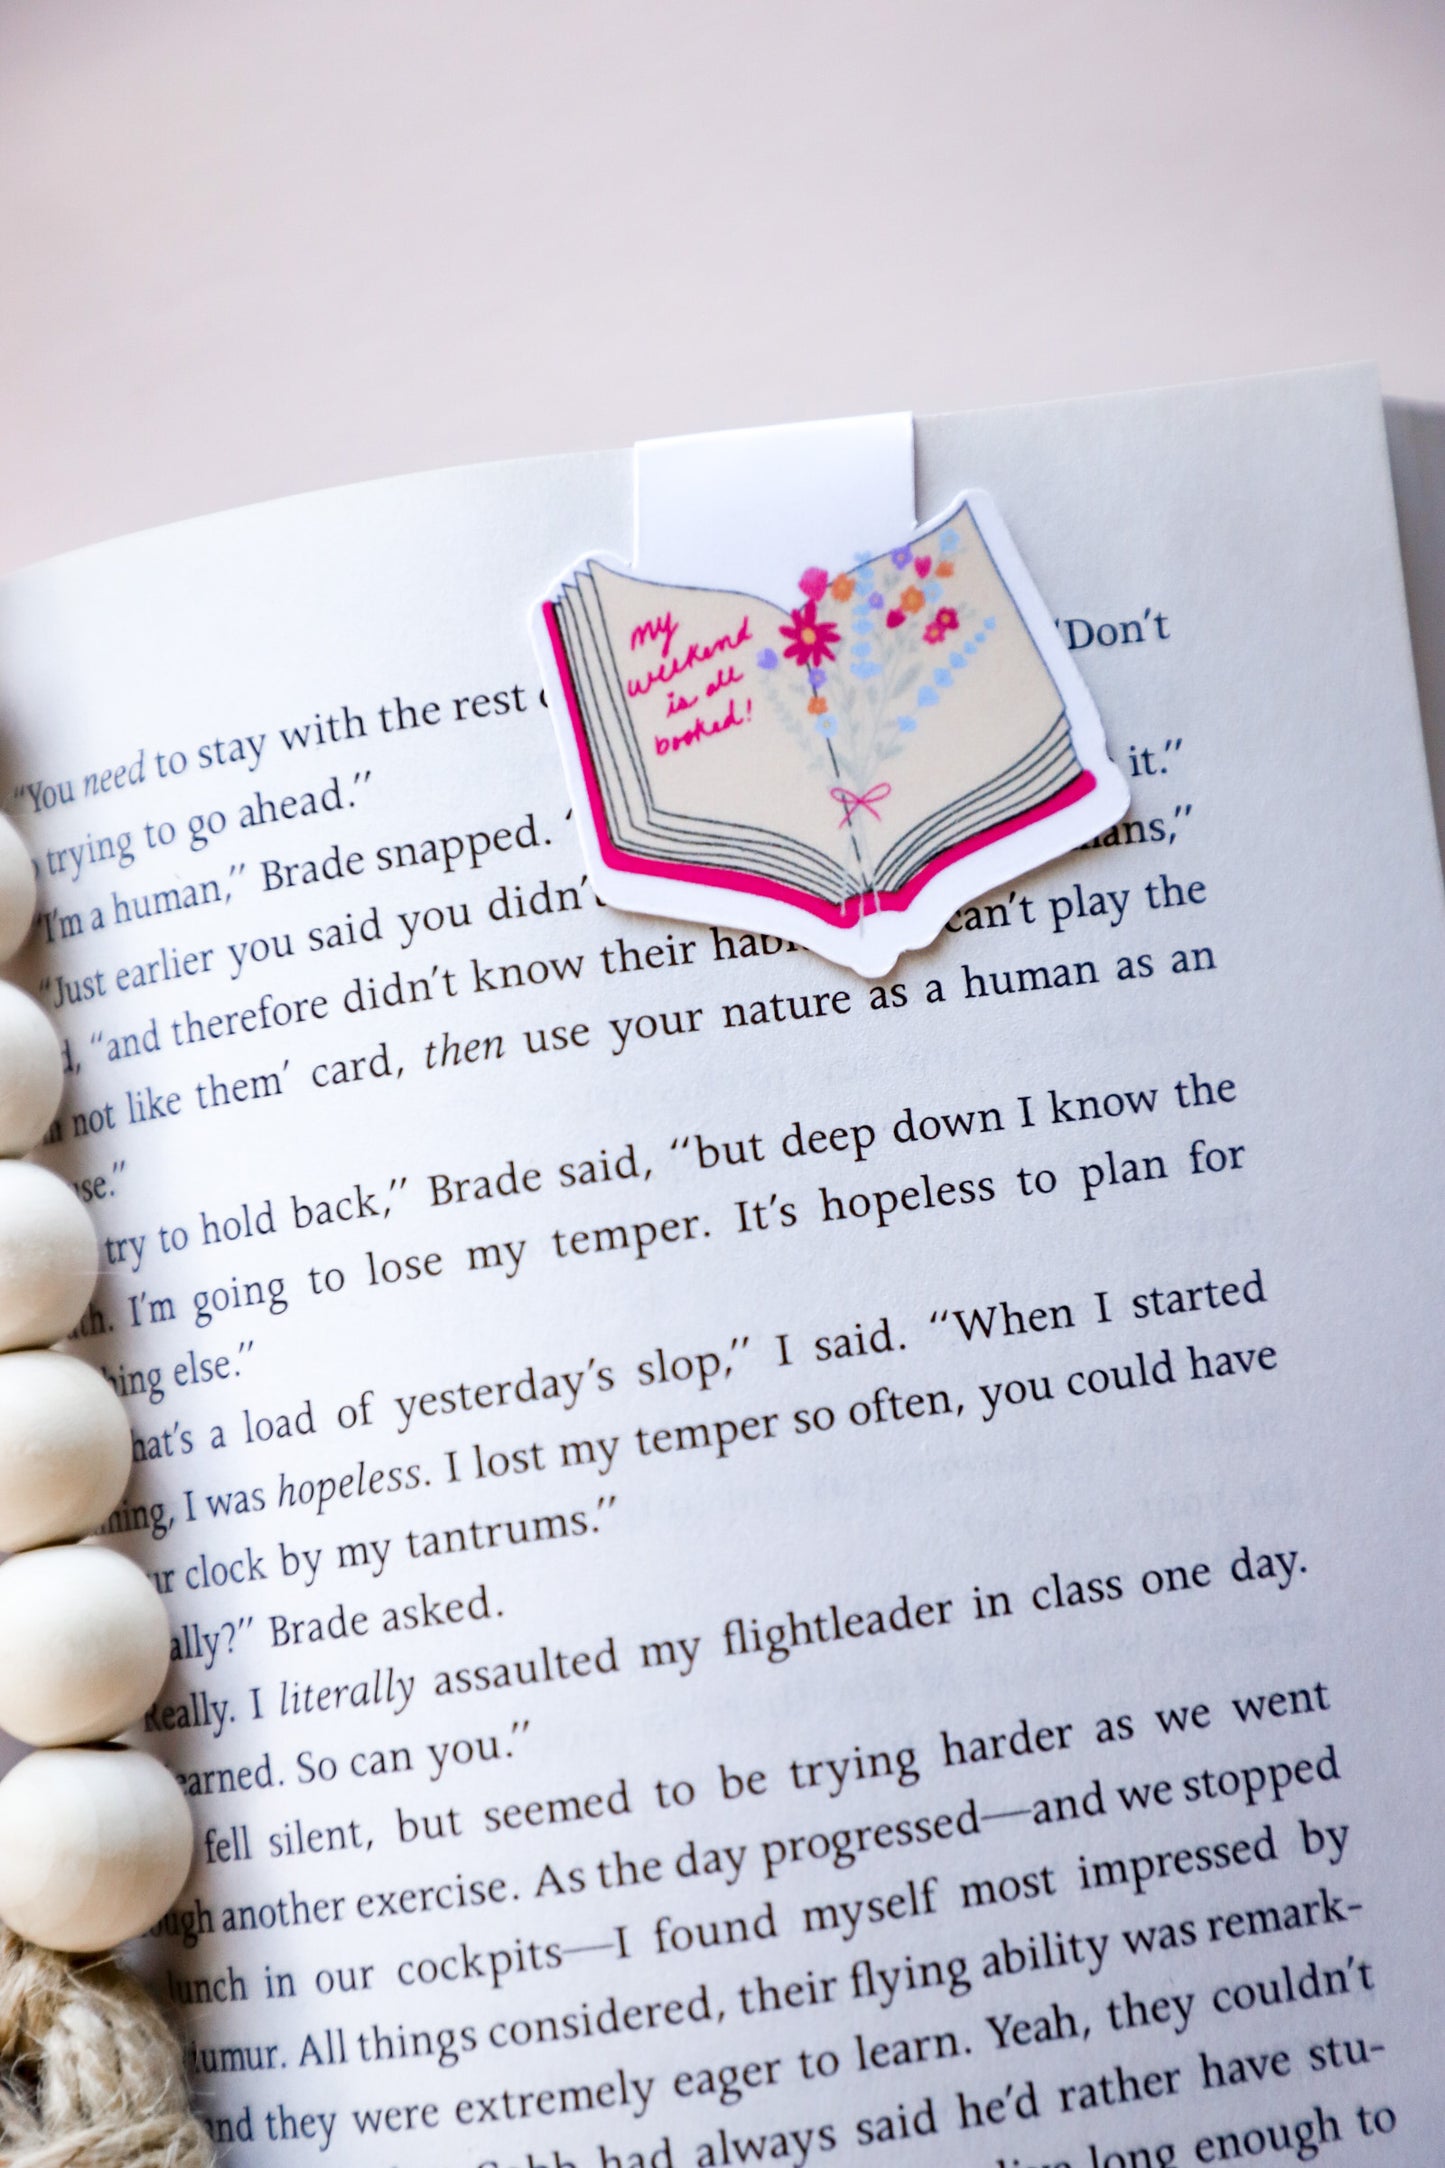 my
weekend
is all
booked!
"You need to stay with the rest
trying to go ahead."
"I'm a human," Brade snapped. "
"Just earlier you said you didn't
"and therefore didn't know their 'Don't
not like them' card, then use your nature as a human as an
it."
can't play the
try to hold back," Brade said, "but deep down I know the
I'm going to lose my temper. It's hopeless to plan for
else."
a load of yesterday's slop," I said. "When I started
I was hopeless. I lost my temper so often, you could have
clock by my tantrums."
Brade asked.
Really. I literally assaulted my flightleader in class one day.
So can you."
fell silent, but seemed to be trying harder as we went
another exercise. As the day progressed—and we stopped
lunch in our cockpits—I found myself most impressed by
All things considered, their flying ability was remark-
and they were extremely eager to learn. Yeah, they couldn't
had always said he'd rather have stu-
long enough to